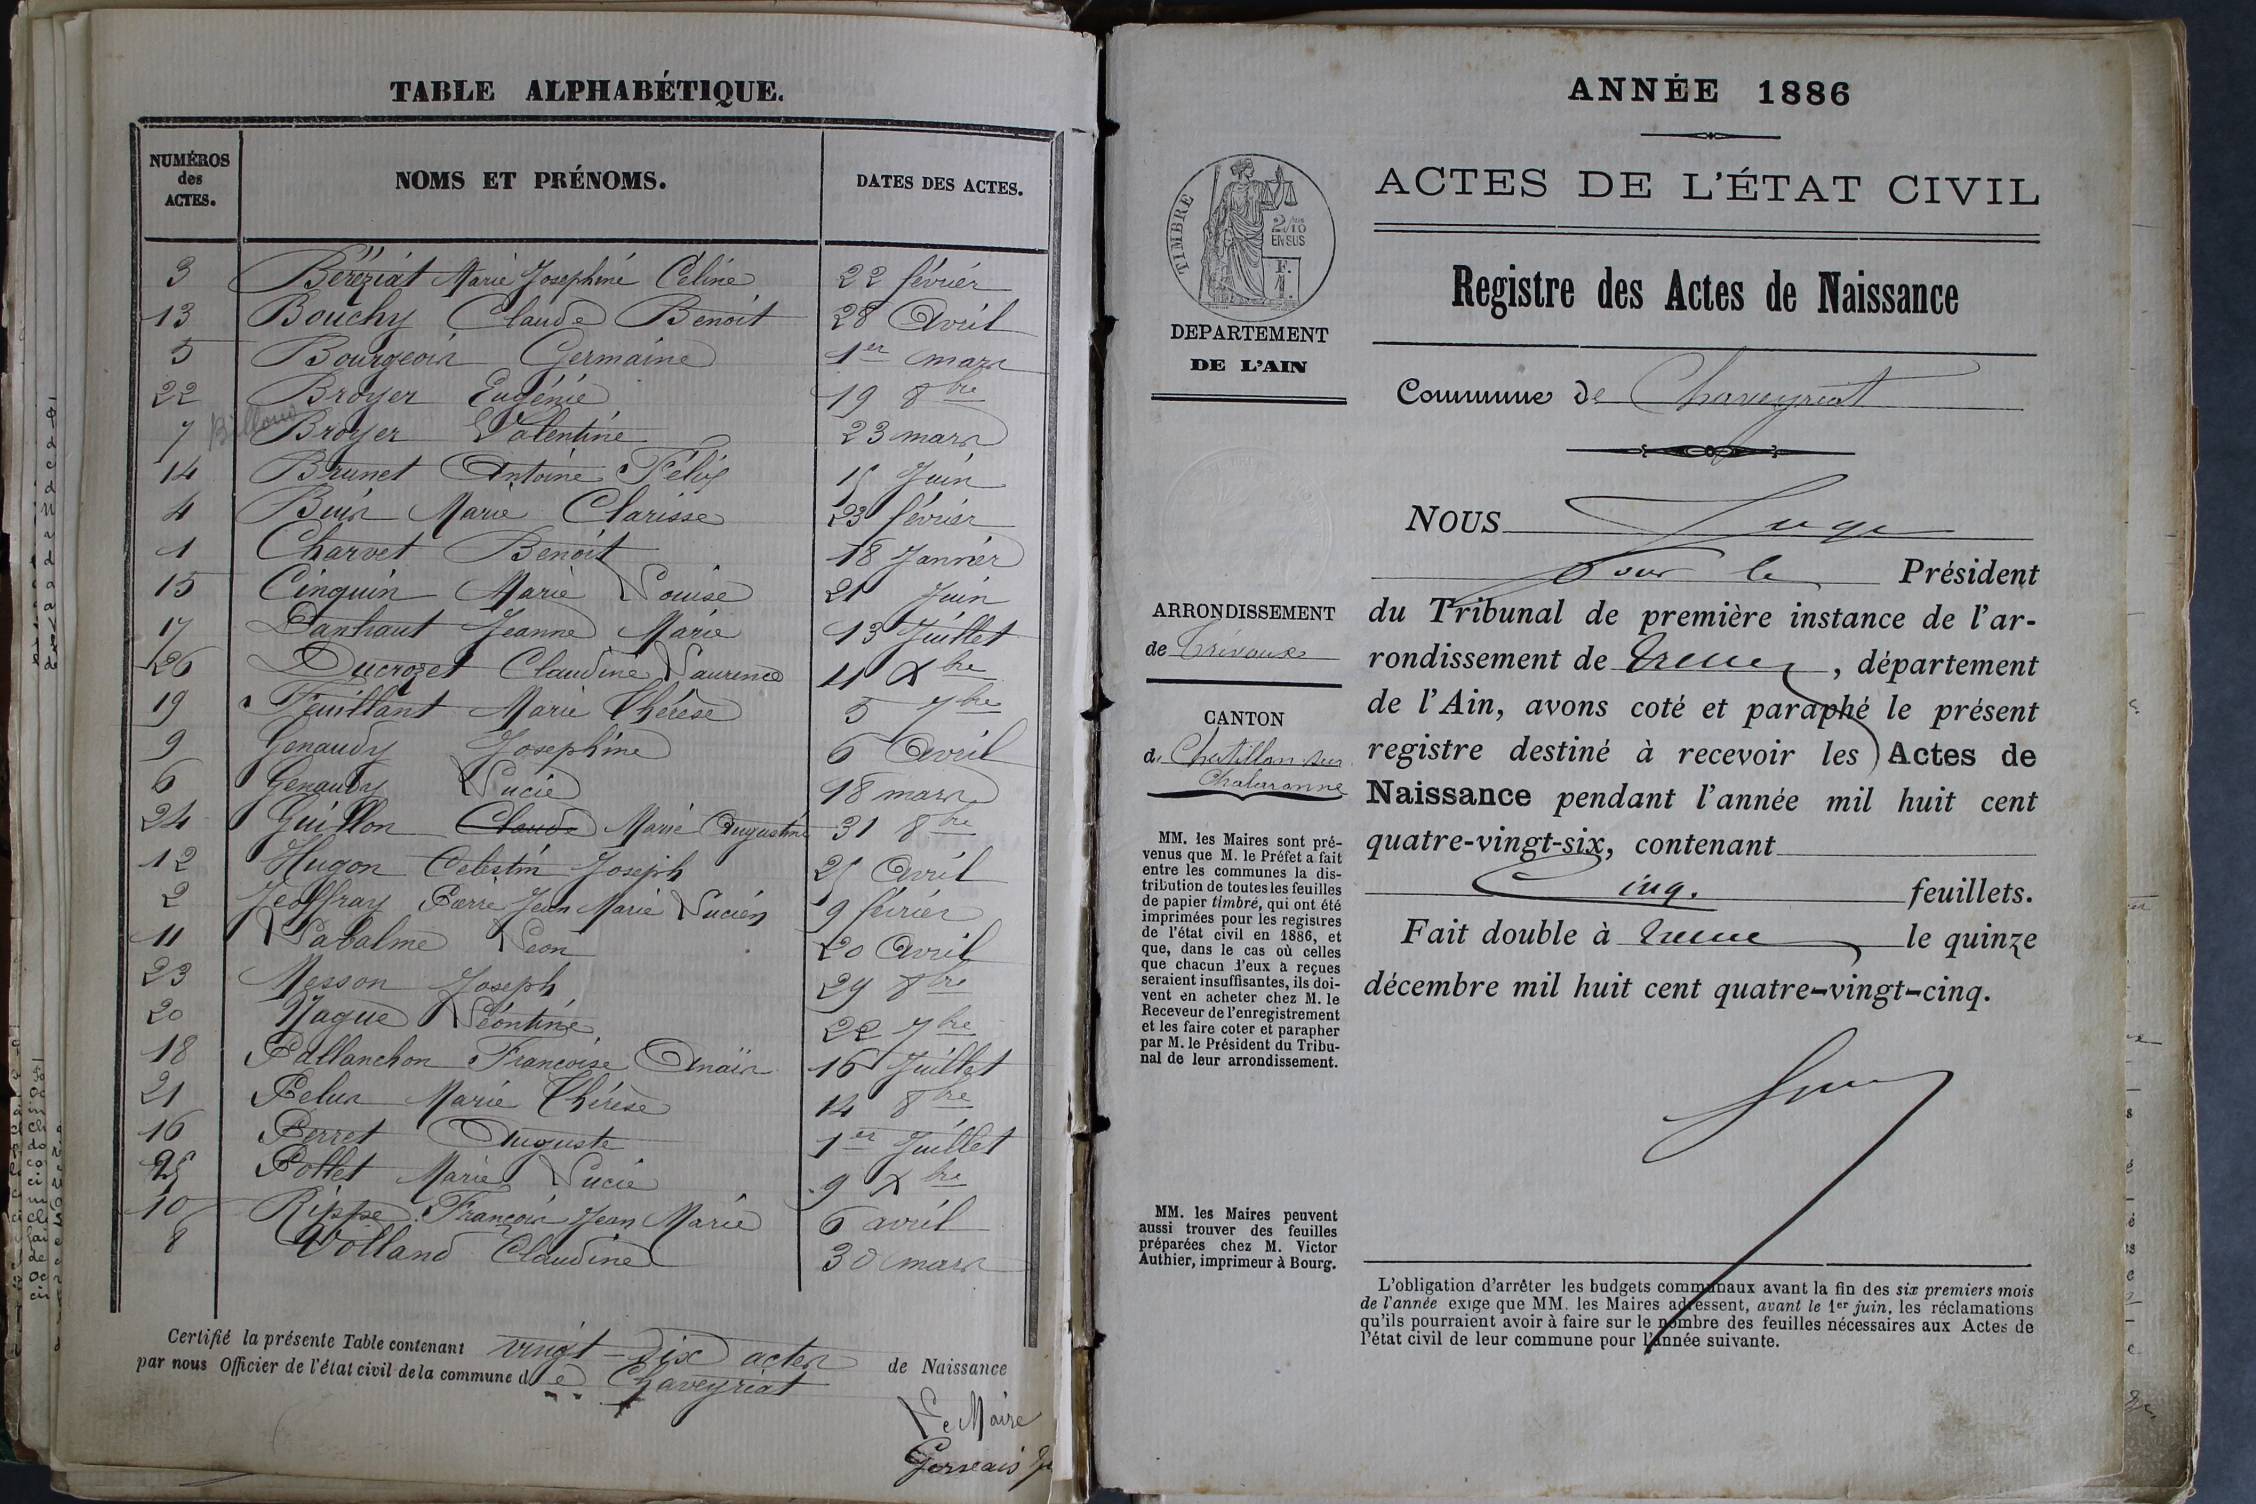 TABLE ALPHABÉTIQUE.
NUMÉROS des ACTES. NOMS ET PRÉNOMS. DATES DES ACTES.
3 Béréziat Marie Joséphine Céline 22 février
13 Bouchy Claude Benoit 28 Avril
5 Bourgeois Germaine 1er mars
22 Broyer Eugénie 19 8bre
7 Broyer Valentine 23 mars
14 Brunet Antoine Félix 15 Juin
4 Buis Marie Clarisse 23 février
1 Charvet Benoit 18 Janvier
15 Cinquin Marie Louise 21 Juin
17 Danhaut Jeanne Marie 13 Juillet
26 Ducrozet Claudine Laurence 11 Xbre
19 Feuillant Marie Thérèse 5 7bre
9 Genaudy Joséphine 6 Avril
6 Genaudy Lucie 18 mars
24 Guillon Claude Marie Augustine 31 8bre
12 Hugon Celestin Joseph 25 Avril
2 Jeoffray Pierre Jean Marie Lucien 9 février
11 Labalme Leon 20 Avril
23 Messon Joseph 29 8bre
20 Nague Léontine 22 7bre
18 Pallanchon Francoise Anaïs 16 Juillet
21 Pelus Marie Thérèse 14 8bre
16 Perret Auguste 1er Juillet
25 Pollet Marie Lucie 9 Xbre
10 Rippe François Jean Marie 6 avril
8 Volland Claudine 30 mars
Certifié la présente Table contenant vingt-dix actes de Naissance
par nous Officier de l'état civil de la commune de Chaveyriat
Le Maire
ANNÉE 1886
ACTES DE L'ÉTAT CIVIL
TIMBRE
2/10
EN SUS
F.
1.
DEPARTEMENT
DE L'AIN
Registre des Actes de Naissance
Commune de Chaveyriat
NOUS Juge
pour le Président
ARRONDISSEMENT
de Trévoux
du Tribunal de première instance de l'ar-
rondissement de Trevoux, département
de l'Ain, avons coté et paraphé le présent
CANTON
de Chatillon sur
Chalaronne
registre destiné à recevoir les Actes de
Naissance pendant l'année mil huit cent
quatre-vingt-six, contenant
Cinq. feuillets.
Fait double à Trevoux le quinze
décembre mil huit cent quatre-vingt-cinq.
MM. les Maires sont pré-
venus que M. le Préfet a fait
entre les communes la dis-
tribution de toutes les feuilles
de papier timbré, qui ont été
imprimées pour les registres
de l'état civil en 1886, et
que, dans le cas où celles
que chacun d'eux a reçues
seraient insuffisantes, ils doi-
vent en acheter chez M. le
Receveur de l'enregistrement
et les faire coter et parapher
par M. le Président du Tribu-
nal de leur arrondissement.
MM. les Maires peuvent
aussi trouver des feuilles
préparées chez M. Victor
Authier, imprimeur à Bourg.
L'obligation d'arrêter les budgets communaux avant la fin des six premiers mois
de l'année exige que MM. les Maires adressent, avant le 1er juin, les réclamations
qu'ils pourraient avoir à faire sur le nombre des feuilles nécessaires aux Actes de
l'état civil de leur commune pour l'année suivante.